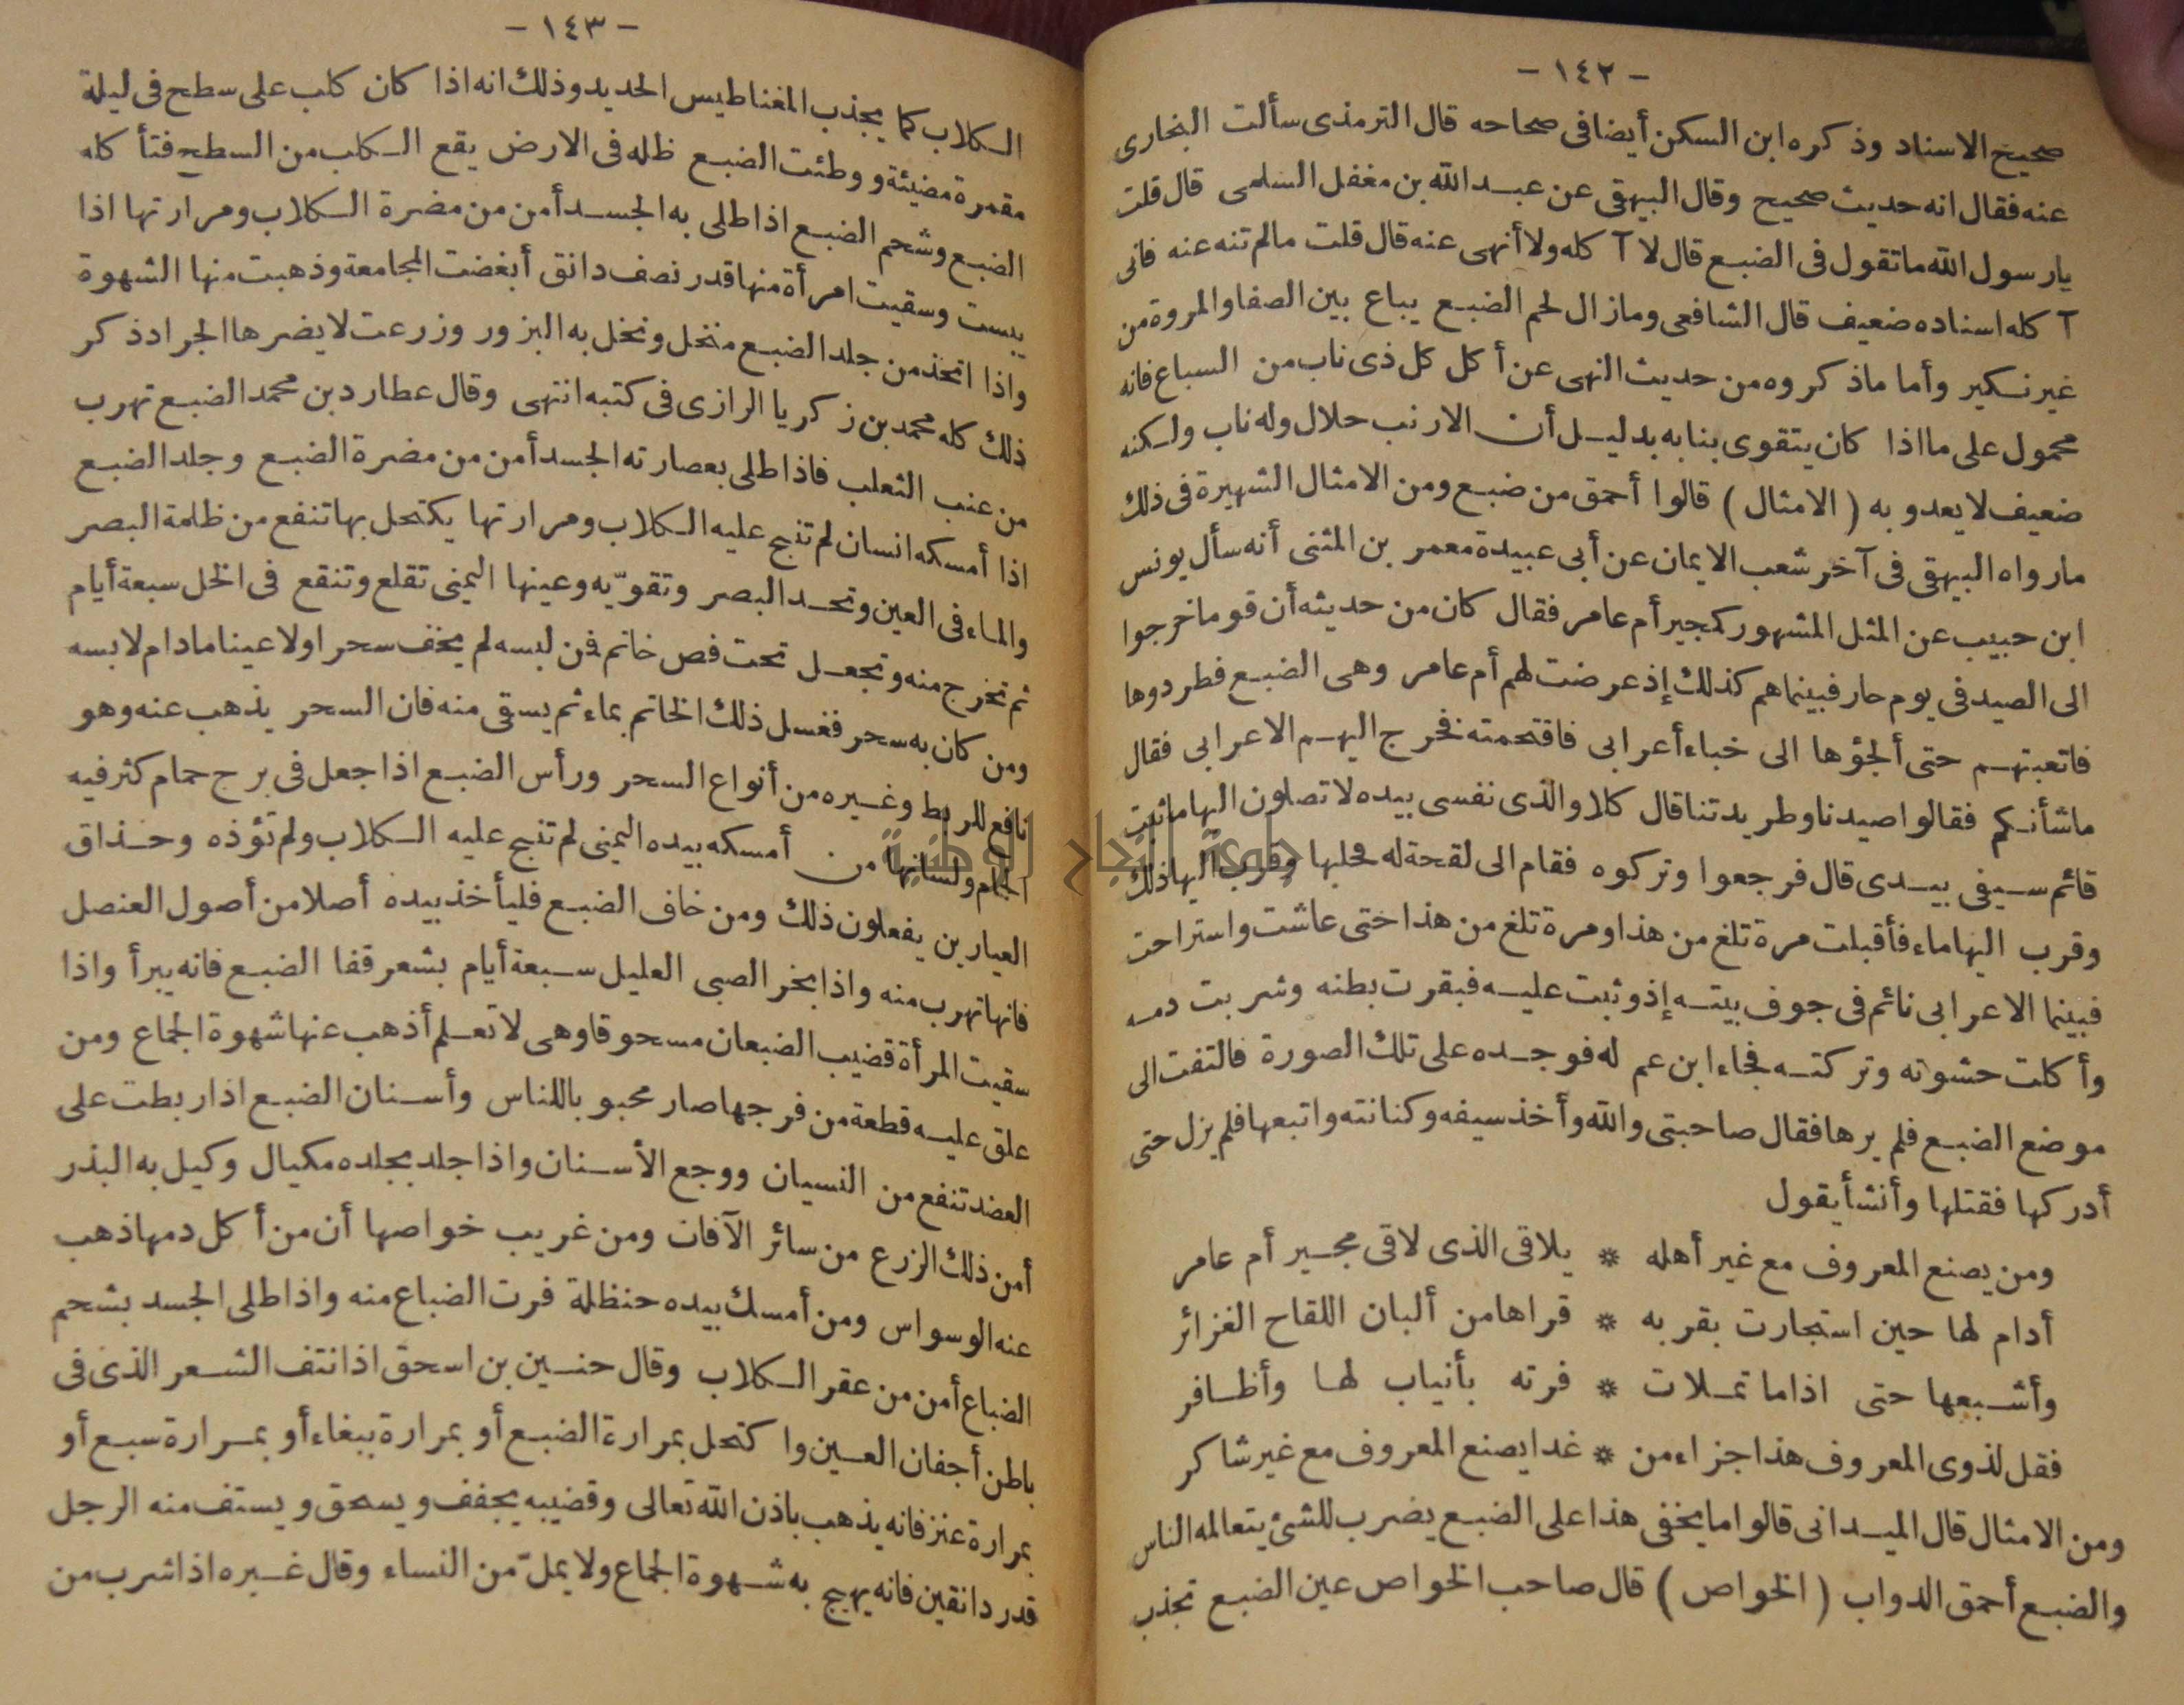 - ١٤٢ -
صحيح الاسناد وذكره ابن السكن أيضا فى صحاحه قال الترمذى سألت البخارى
عنه فقال انه حديث صحيح وقال البيهقى عن عبد الله بن مغفل السلمى قال قلت
يارسول الله ما تقول فى الضبع قال لا آكله ولا أنهى عنه قال قلت مالم تنه عنه فانى
آكله اسناده ضعيف قال الشافعى ومازال لحم الضبع يباع بين الصفا والمروة من
غير نكير وأما ماذكروه من حديث النهى عن أكل كل ذى ناب من السباع فانه
محمول على ما اذا كان يتقوى بنابه بدليل أن الارنب حلال وله ناب ولكنه
ضعيف لا يعدو به (الامثال) قالوا أحمق من ضبع ومن الامثال الشهيرة فى ذلك
مارواه البيهقى فى آخر شعب الايمان عن أبى عبيدة معمر بن المثنى أنه سأل يونس
ابن حبيب عن المثل المشهور كمجير أم عامر فقال كان من حديثه أن قوما خرجوا
الى الصيد فى يوم حار فبينماهم كذلك إذ عرضت لهم أم عامر وهى الضبع فطردوها
فاتعبتهم حتى ألجؤها الى خباء أعرابى فاقتحمته فخرج اليهم الاعرابى فقال
ماشأنكم فقالوا صيدنا وطريدتنا قال كلا والذى نفسى بيده لا تصلون اليها ماثبت
قائم سيفى بيدى قال فرجعوا وتركوه فقام الى لقحة له فحلبها وقرب اليها ذلك
وقرب اليها ماء فأقبلت مرة تلغ من هذا ومرة تلغ من هذا حتى عاشت واستراحت
فبينما الاعرابى نائم فى جوف بيته إذ وثبت عليه فبقرت بطنه وشربت دمه
وأكلت حشوته وتركته فجاء ابن عم له فوجده على تلك الصورة فالتفت الى
موضع الضبع فلم يرها فقال صاحبتى والله وأخذ سيفه وكنانته واتبعها فلم يزل حتى
أدركها فقتلها وأنشأ يقول
ومن يصنع المعروف مع غير أهله * يلاقى الذى لاقى مجير أم عامر
أدام لها حين استجارت بقربه * قراها من ألبان اللقاح الغزائر
وأشبعها حتى اذا ما تملات * فرته بأنياب لها وأظافر
فقل لذوى المعروف هذا جزاء من * غدا يصنع المعروف مع غير شاكر
ومن الامثال قال الميدانى قالوا ما يخفى هذا على الضبع يضرب للشئ يتعالمه الناس
والضبع أحمق الدواب (الخواص) قال صاحب الخواص عين الضبع تجذب
- ١٤٣ -
الكلاب كما يجذب المغناطيس الحديد وذلك انه اذا كان كلب على سطح فى ليلة
مقمرة مضيئة ووطئت الضبع ظله فى الارض يقع الكلب من السطح فتأكله
الضبع وشحم الضبع اذا طلى به الجسد أمن من مضرة الكلاب ومرارتها اذا
يبست وسقيت امرأة منها قدر نصف دانق أبغضت المجامعة وذهبت منها الشهوة
واذا اتخذ من جلد الضبع منخل ونخل به البزور وزرعت لا يضرها الجراد ذكر
ذلك كله محمد بن زكريا الرازى فى كتبه انتهى وقال عطارد بن محمد الضبع تهرب
من عنب الثعلب فاذا طلى بعصارته الجسد أمن من مضرة الضبع وجلد الضبع
اذا أمسكه انسان لم تنبح عليه الكلاب ومرارتها يكتحل بها تنفع من ظلمة البصر
والماء فى العين وتحد البصر وتقوّيه وعينها اليمنى تقلع وتنقع فى الخل سبعة أيام
ثم تخرج منه وتجعل تحت فص خاتم فمن لبسه لم يخف سحرا ولا عينا مادام لابسه
ومن كان به سحر فغسل ذلك الخاتم بماء ثم يسقى منه فان السحر يذهب عنه وهو
نافع للربط وغيره من أنواع السحر ورأس الضبع اذا جعل فى برج حمام كثر فيه
الحمام ولسانها من أمسكه بيده اليمنى لم تنبح عليه الكلاب ولم تؤذه وحذاق
العيارين يفعلون ذلك ومن خاف الضبع فليأخذ بيده أصلا من أصول العنصل
فانها تهرب منه واذا بخر الصبى العليل سبعة أيام بشعر قفا الضبع فانه يبرأ واذا
سقيت المرأة قضيب الضبعان مسحوقا وهى لا تعلم أذهب عنها شهوة الجماع ومن
علق عليه قطعة من فرجها صار محبوبا للناس وأسنان الضبع اذا ربطت على
العضد تنفع من النسيان ووجع الأسنان واذا جلد بجلده مكيال وكيل به البذر
أمن ذلك الزرع من سائر الآفات ومن غريب خواصها أن من أكل دمها ذهب
عنه الوسواس ومن أمسك بيده حنظلة فرت الضباع منه واذا طلى الجسد بشحم
الضباع أمن من عقر الكلاب وقال حنين بن اسحق اذا نتف الشعر الذى فى
باطن أجفان العين واكتحل بمرارة الضبع أو بمرارة ببغاء أو بمرارة سبع أو
بمرارة عنز فانه يذهب باذن الله تعالى وقضيبه يجفف ويسحق ويستف منه الرجل
قدر دانقين فانه يهيج به شهوة الجماع ولا يملّ من النساء وقال غيره اذا شرب من
جامعة النجاح الوطنية